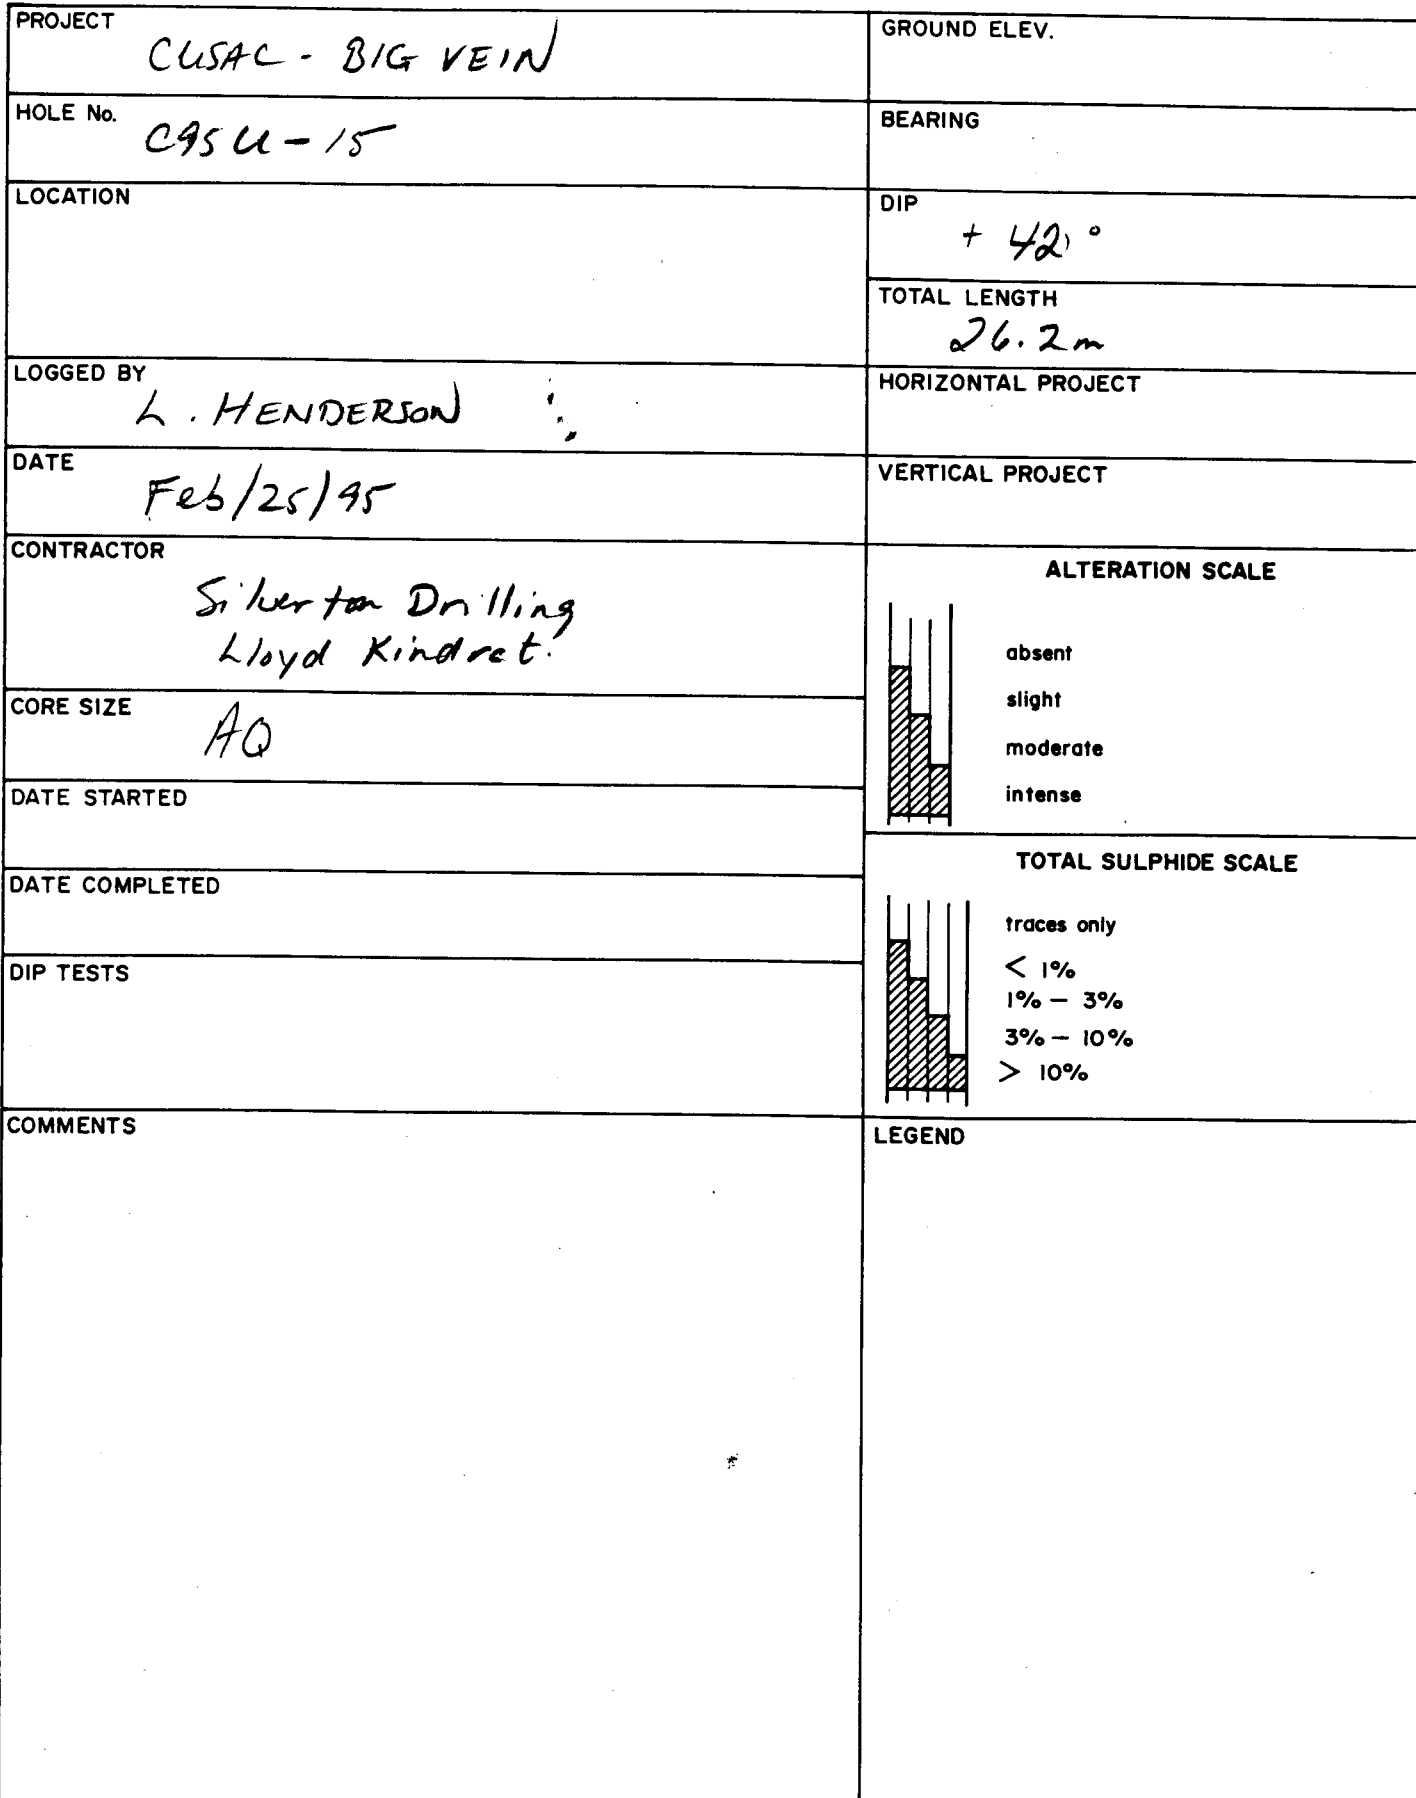 PROJECT
CUSAC - BIG VEIN
HOLE No.
C95U-15
LOCATION
LOGGED BY
L. HENDERSON
DATE
Feb/25/95
CONTRACTOR
Silverton Drilling
Lloyd Kindret.
CORE SIZE
AQ
DATE STARTED
DATE COMPLETED
DIP TESTS
COMMENTS
GROUND ELEV.
BEARING
DIP
+ 42°
TOTAL LENGTH
26.2m
HORIZONTAL PROJECT
VERTICAL PROJECT
ALTERATION SCALE
absent
slight
moderate
intense
TOTAL SULPHIDE SCALE
traces only
< 1%
1% - 3%
3% - 10%
> 10%
LEGEND